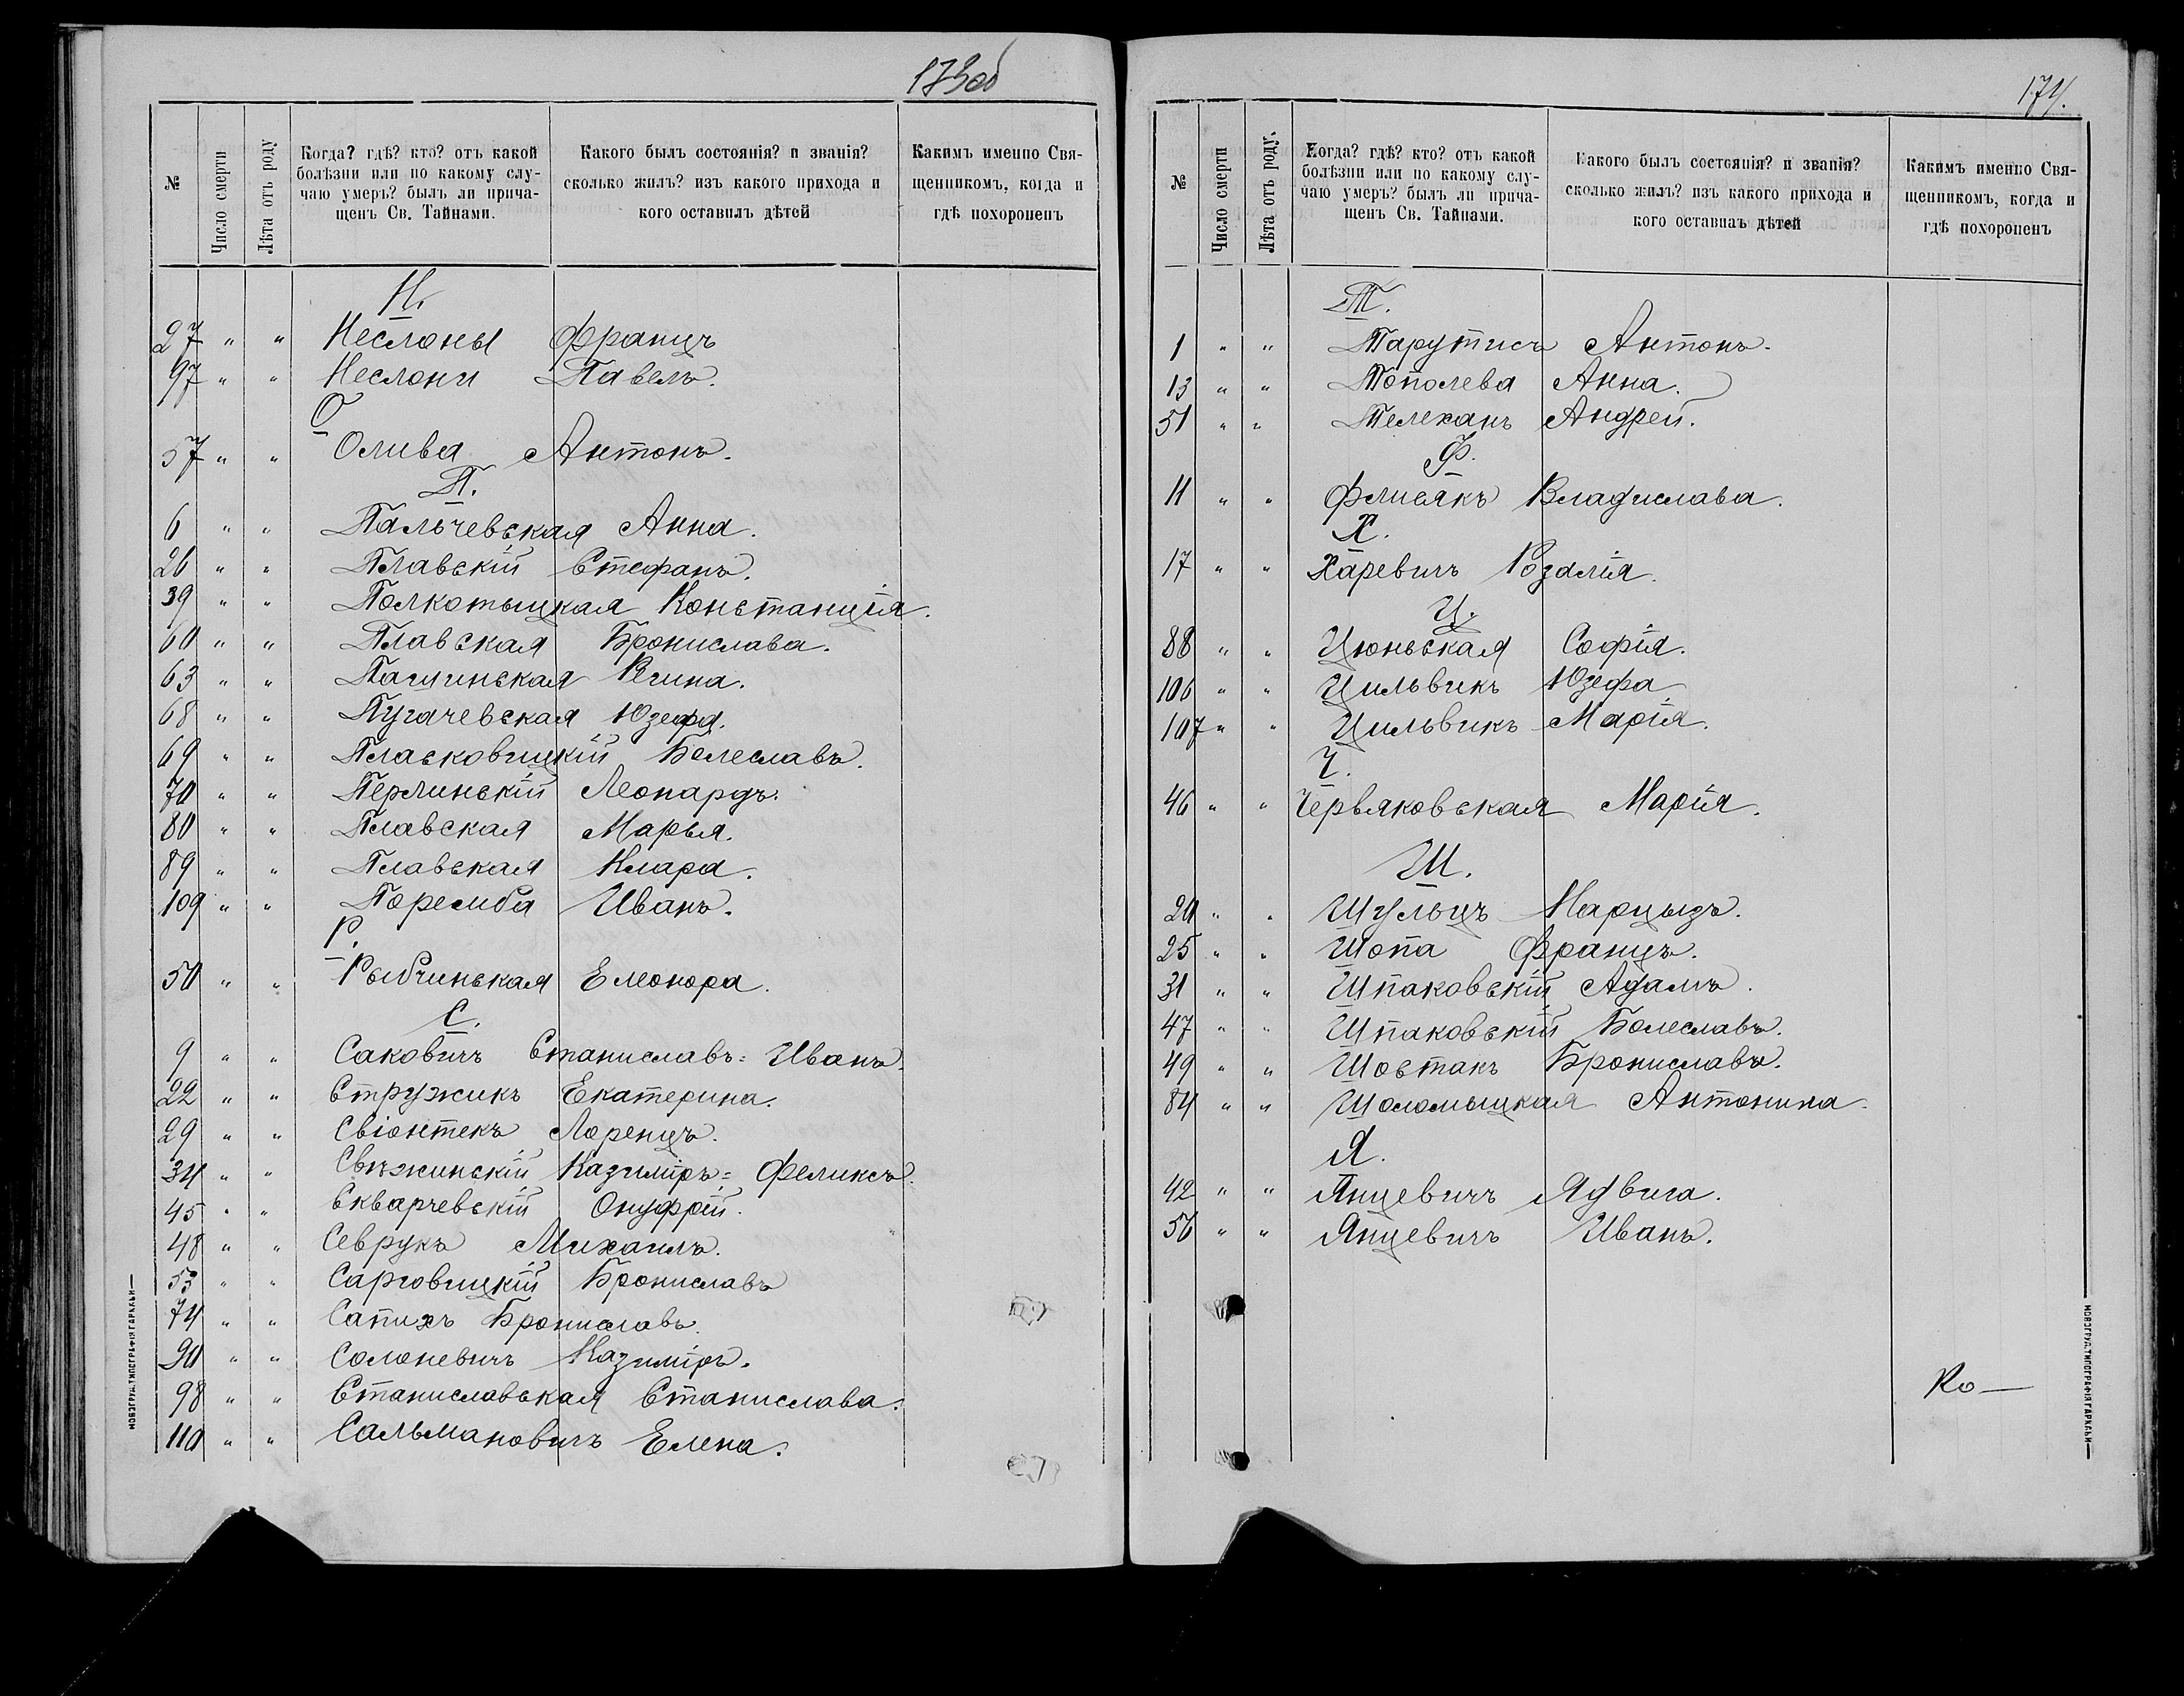 173об
№
Число смерти
Лѣта отъ роду
Когда? гдѣ? кто? отъ какой
болѣзни или по какому слу-
чаю умеръ? былъ ли прича-
щенъ Св. Тайнами.
Какого былъ состоянія? и званія?
сколько жилъ? изъ какого прихода и
кого оставилъ дѣтей
Какимъ именно Свя-
щенникомъ, когда и
гдѣ похороненъ
Н.
27 " " Неслоны Францъ
97 " " Неслони Павелъ.
О
57 " " Олива Антонъ.
П.
6 " " Пальчевская Анна.
26 " " Плавскій Стефанъ.
39 " " Полкотыцкая Констанція.
60 " " Плавская Бронислава.
63 " " Пашинская Регина.
68 " " Пугачевская Юзефа.
69 " " Пласковицкій Болеславъ.
70 " " Перлинскій Леонардъ.
80 " " Плавская Марья.
89 " " Плавская Клара.
109 " " Поремба Иванъ.
Р.
50 " " Рыбчинская Елеонора.
С.
9 " " Саковичъ Станиславъ= Иванъ.
22 " " Стружикъ Екатерина.
29 " " Свіонтекъ Лоренцъ.
34 " " Свѣжинскій Казиміръ= Феликсъ.
45 " " Скварчевскій Онуфрій.
48 " " Севрукъ Михаилъ.
53 " " Сарговицкій Брониславъ
74 " " Сапихъ Брониславъ.
90 " " Солоневичъ Казиміръ.
98 " " Станиславская Станислава.
110 " " Сальмановичъ Елена.
НОВОГРУД. ТИПОГРАФІЯ ГАРКАВИ
174.
№
Число смерти
Лѣта отъ роду.
Когда? гдѣ? кто? отъ какой
болѣзни или по какому слу-
чаю умеръ? былъ ли прича-
щенъ Св. Тайнами.
Какого былъ состоянія? и званія?
сколько жилъ? изъ какого прихода и
кого оставилъ дѣтей
Какимъ именно Свя-
щенникомъ, когда и
гдѣ похороненъ
Т.
1 " " Тарутисъ Антонъ.
13 " " Тополева Анна.
51 " " Телеханъ Андрей.
Ф.
11 " " Флисякъ Владислава.
Х.
17 " " Харевичъ Розалія.
Ц.
88 " " Цюньская Софія.
106 " " Цильвикъ Юзефа
107 " " Цильвикъ Марія.
Ч.
46 " " Червяковская Марія.
Ш.
20 " " Шульцъ Нарцызъ.
25 " " Шопа Францъ.
31 " " Шпаковскій Адамъ.
47 " " Шпаковскій Болеславъ.
49 " " Шостакъ Брониславъ.
84 " " Шоломыцкая Антонина.
Я.
42 " " Янцевичъ Ядвига.
56 " " Янцевичъ Иванъ.
Ко—
НОВОГРУД. ТИПОГРАФІЯ ГАРКАВИ